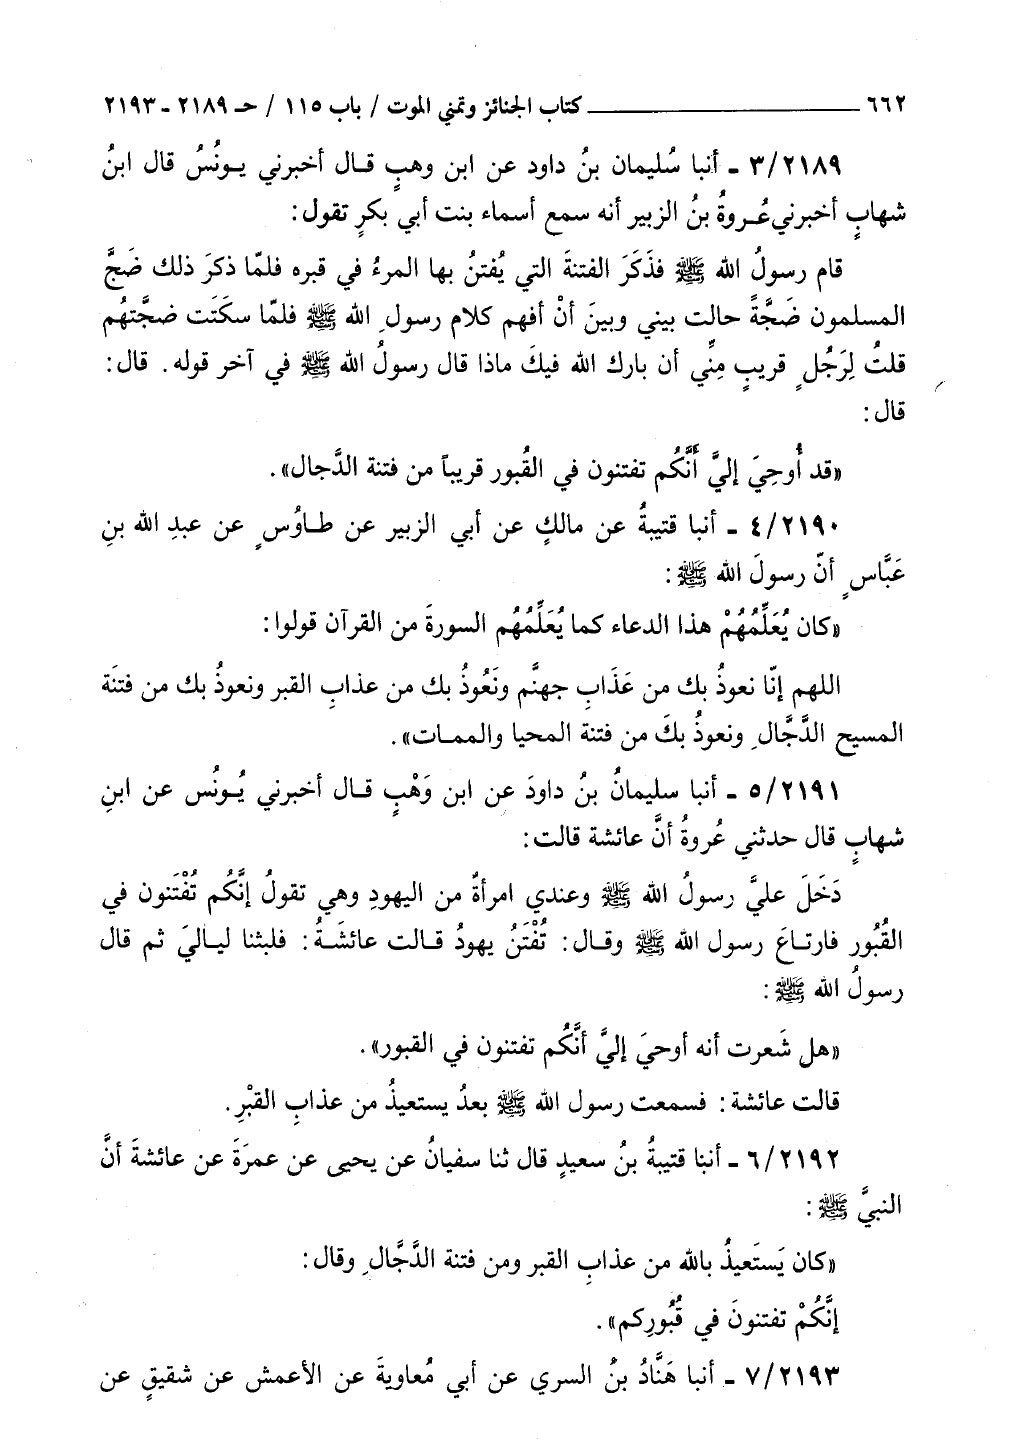 ٦٦٢ ـــــــــــــــــ كتاب الجنائز وتمني الموت / باب ١١٥ / حـ ٢١٨٩ - ٢١٩٣
٣/٢١٨٩ - أنبا سُليمان بنُ داود عن ابن وهبٍ قال أخبرني يونُسُ قال ابنُ
شهابٍ أخبرني عُروةُ بنُ الزبير أنه سمع أسماء بنت أبي بكرٍ تقول:
قام رسولُ الله ﷺ فذَكَرَ الفتنةَ التي يُفتنُ بها المرءُ في قبره فلمّا ذكرَ ذلك ضَجَّ
المسلمون ضَجَّةً حالت بيني وبينَ أنْ أفهم كلام رسولِ الله ﷺ فلمّا سكَتَت ضجَّتهُم
قلتُ لِرَجُلٍ قريبٍ مِنِّي أن بارك الله فيكَ ماذا قال رسولُ الله ﷺ في آخر قوله. قال:
قال:
«قد أُوحِيَ إليَّ أَنَّكُم تفتنون في القُبور قريباً من فتنة الدَّجال».
٤/٢١٩٠ - أنبا قتيبةُ عن مالكٍ عن أبي الزبير عن طاوُسٍ عن عبدِ الله بنِ
عَبَّاسٍ أنّ رسولَ الله ﷺ:
«كان يُعَلِّمُهُمْ هذا الدعاء كما يُعَلِّمُهُم السورةَ من القرآن قولوا:
اللهم إنّا نعوذُ بك من عَذَابِ جهنَّم ونَعُوذُ بك من عذابِ القبر ونعوذُ بك من فتنَة
المسيح الدَّجَّالِ ونعوذُ بكَ من فتنة المحيا والممات».
٥/٢١٩١ - أنبا سليمانُ بنُ داودَ عن ابن وَهْبٍ قال أخبرني يُونُس عن ابنِ
شهابٍ قال حدثني عُروةُ أنَّ عائشة قالت:
دَخَلَ عليَّ رسولُ الله ﷺ وعندي امرأةٌ من اليهودِ وهي تقولُ إنَّكُم تُفْتَنون في
القُبُور فارتاعَ رسول الله ﷺ وقال: تُفْتَنُ يهودُ قالت عائشَةُ: فلبثنا لياليَ ثم قال
رسولُ الله ﷺ:
«هل شَعرت أنه أوحيَ إليَّ أنَّكُم تفتنون في القبور».
قالت عائشة: فسمعت رسول الله ﷺ بعدُ يستعيذُ من عذابِ القبْرِ.
٦/٢١٩٢ - أنبا قتيبةُ بنُ سعيدٍ قال ثنا سفيانُ عن يحيى عن عمرَةَ عن عائشةَ أنَّ
النبيَّ ﷺ:
«كان يَستَعيذُ بالله من عذابِ القبر ومن فتنة الدَّجَّالِ وقال:
إنَّكُمْ تفتنونَ في قُبُورِكم».
٧/٢١٩٣ - أنبا هَنَّادُ بنُ السري عن أبي مُعاويةَ عن الأعمش عن شقيقٍ عن